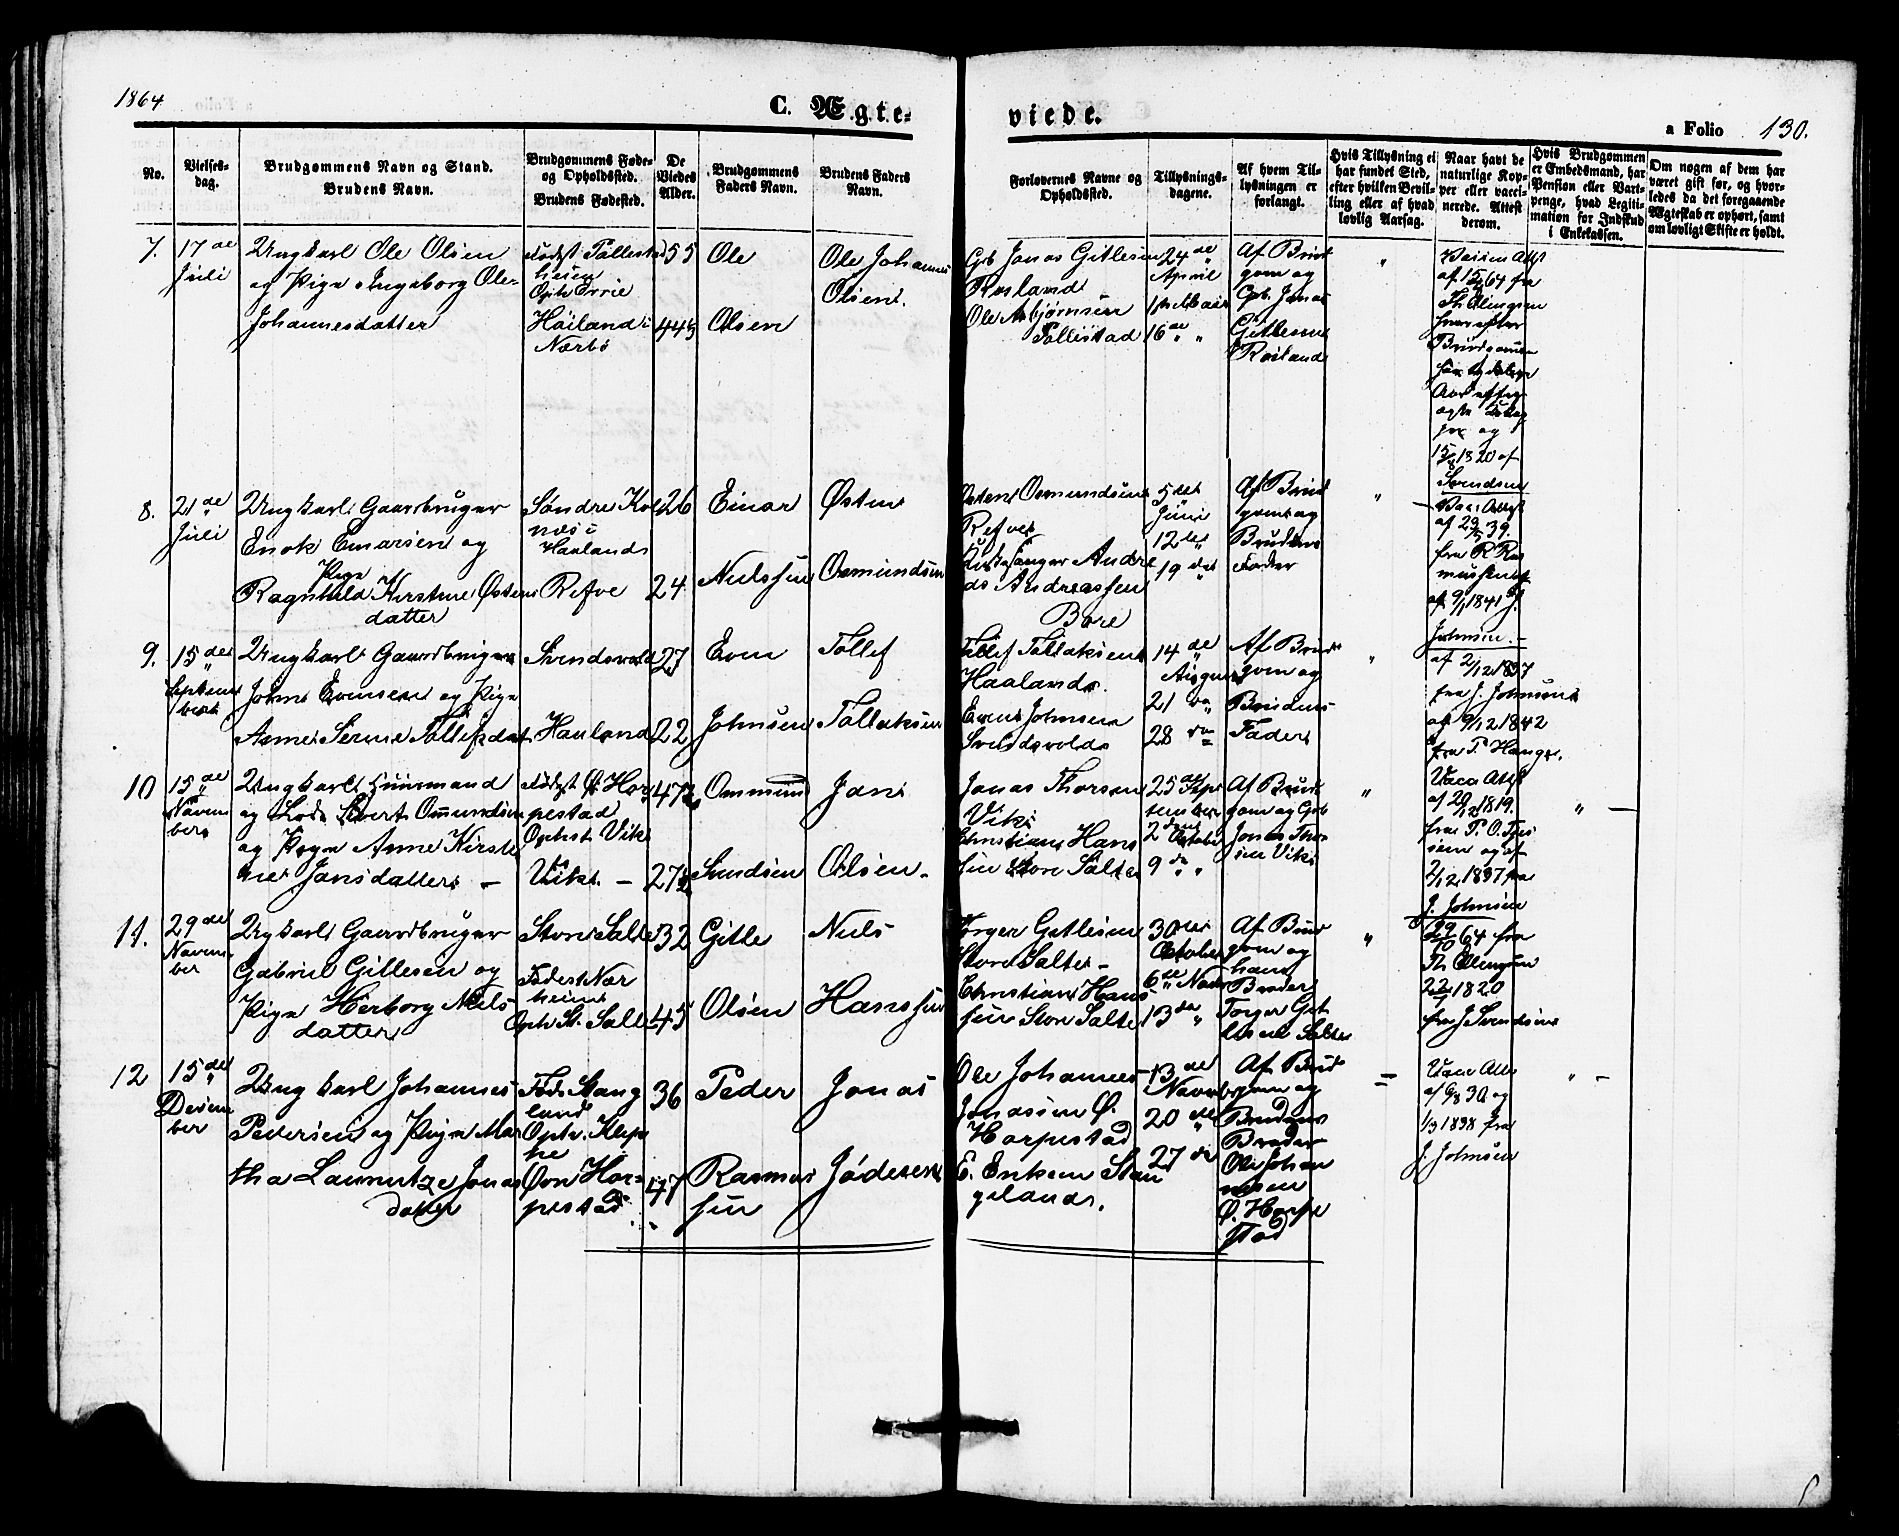 1864
C. Ægte-
viede.
a Folio 130.
No.
Vielses-
dag.
Brudgommens Navn og Stand.
Brudens Navn.
Brudgommens Føde-
og Opholdssted.
Brudens Fødested.
De
Viedes
Alder.
Brudgommens
Faders Navn.
Brudens Faders
Navn.
Forlovernes Navne og
Opholdssted.
Tillysnings-
dagene.
Af hvem Til-
lysningen er
forlangt.
Hvis Tillysning ei
har fundet Sted,
efter hvilken Bevil-
ling eller af hvad
lovlig Aarsag.
Naar havt de
naturlige Kop-
per eller vacci-
nerede. Attest
derom.
Hvis Brudgommen
er Embedsmand, har
Pension eller Vart-
penge, hvad Legiti-
mation for Indskud
i Enkekassen.
Om nogen af dem har
været gift før, og hvor-
ledes da det foregaaende
Ægteskab er ophørt, samt
om lovligt Skifte er holdt.
7.
17de
Juli
Ungkarl Ole Olsen
og Pige Ingeborg Ole
Johannesdatter
født Tollests
heien
Oph Errie
Høiland i
Nærbø
55
Ole
Olsen
Ole Johannes
Olsen.
Gb Jonas Gitlesen
Rosland
Ole Asbjørnsen
Tollestad
24de
April
1ste Mai
16de "
Af Brud
gom og
Gb. Jonas
Gitlesen
Rosland
"
af 15/64 fra
Th Ellingsen
Brudgommen
og
15/8 1820 af
Svendsen
8.
21de
Juli
Ungkarl Gaardbruger
Enok Einarsen og
Pige
Ragnhild Kirstine Østens
datter
Søndre Kol
næs i
Haaland
Refve
26
24
Einar
Nielssen
Østen
Osmundsen
Osten Osmundsen
Refve
Kirkesanger Andre
as Andreassen
Bore
5te
Juni
12te
19de
Af Brud
gom og
Brudens
Fader
"
Vac. Attest
af 29/5 39.
fra R Ras
mussen
af 9/1 1841 J.
Johnsen.
9.
15de
Septem
ber
Ungkarl Gaardbruger
John Evensen og Pige
Anne Serine Tollefsdat
Svendsvold
Haaland
27
22
Even
Johnsen
Tollef
Tollaksen
Tollef Tollaksen
Haaland
Even Johnsen
Svendsvold
14de
August
21de
28de
Af Brud
gom og
Brudens
Fader
"
af 2/12 1837
fra J. Johnsen
af 9/12 1842
fra T. Hauge.
10
15de
Novem
ber
Ungkarl Huusmand
og Lods Sivert Ommundsen
og Pige Anne Kirste
ne Jansdatter. —
født Ø. Hor
pestad
Ophst Vik
Vik. —
Ommund
Svendsen
Jan
Olsen.
Jonas Thorsen
Vik
Christian Hans
sen Store Salte
25 Sep
tember
2den
October
9de "
Af Brud
gom og Gb
Jonas Thor
sen Vik
"
Vacc Attst
af 20/12 1819.
fra P. O. Tjes
sem og af
2/12 1837 fra
J. Johnsen
" —
11.
29de
Novem
ber
Ungkarl Gaardbruger
Gabriel Gitlesen og
Pige Herborg Niels
datter
Store Salte
Født Nær
heim
Oph St. Salte
32
45
Gitle
Olsen
Niels
Hanssen
Torger Gitlesen
Store Salte —
Christian Hans
sen Store Salte
30te
October
6te Nov
13de "
Af Brud
gom og
hans
Broder
Torger Git
lesen Salte
"
29/10 64 fra
Th Ellingsen
22/7 1820
fra J Svendsen
12
15de
Decem
ber
Ungkarl Johannes
Pedersen og Pige Mar
tha Lauritze Jonas
datter
Fød. Stang
land
Oph. Klep
pe
Øvr Hor-
pestad.
36
47
Peder
Rasmus
sen
Jonas
Jödesen
Ole Johannes
Jonassen Ø.
Horpestad
E. Eriksen Stan
geland.
13de
Novemb
20de
27de
Af Brud
gom og
Brudens
Broder
Ole Johan
nesen
Ø. Horpe
stad
=
Vacc Atts
af 9/8 30 og
1/3 1838 fra
J. Johnsen
" —